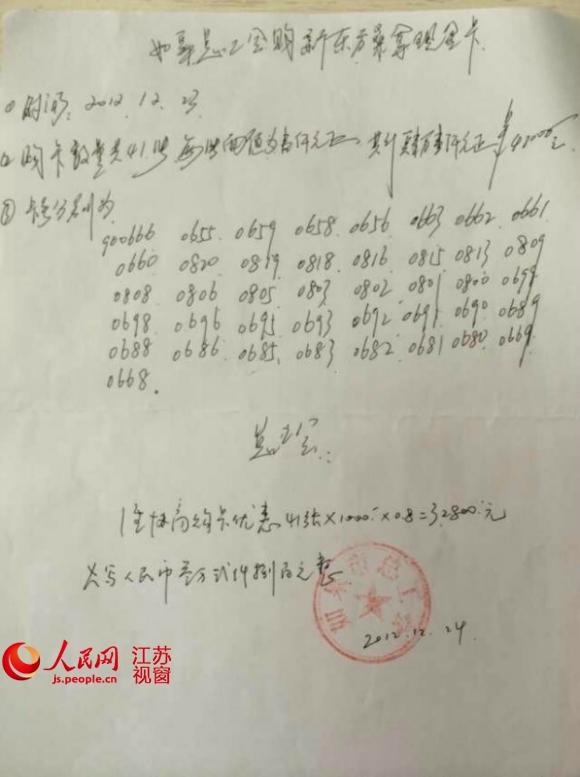 如皋总工会购新东方桑拿现金卡
① 时间: 2012.12.23
② 购卡数量共41张 每张面值为壹仟元正、共计肆万壹仟元正 ¥41000元
③ 卡号分别为
900666 0655. 0659 0658. 0656 0663 0662. 0661
0660 0820 0819 0818. 0816. 0815 0813 0809
0808. 0806 0805. 0803 0802. 0801 0800 0699
0698. 0696 0695 0693 0692 0691 0690 0689
0688 0686 0685. 0683 0682. 0681 0680 0669
0668.
总工会:
购卡优惠 41张×1000×0.8=32800元
大写人民币叁万贰仟捌佰元整
如皋市总工会
2012.12.24
人民网
js.people.cn
江苏
视窗